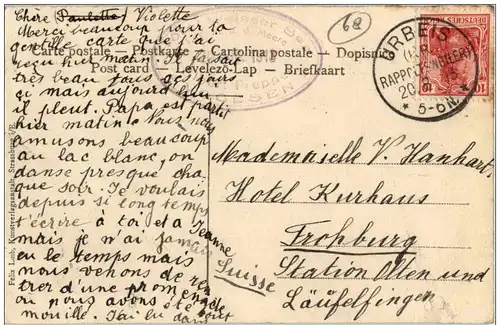 Chère Paulette Violette
Merci beaucoup pour ta
gentille carte que j'ai
reçu hier matin. Il faisait
très beau tous ces jours
mais aujourd'hui
il pleut. Papa est partit
hier matin. Nous nous
amusons beaucoup
au lac blanc, on
danse presque cha-
que soir. Je voulais
depuis si long temps
t'écrire à toi et a Jeanne
mais je n'ai jamais
eu le temps mais
nous venons de ren
trer d'une promenade
où nous avons été
mouillé. J'ai lu dans
Carte postale — Postkarte — Cartolina postale — Dopisnice
Post card — Levelező-Lap — Briefkaart
68
ORBEIS
(KR.
RAPPOLTSWEILER)
20 8 13
* 5-6N *
DEUTSCHES REICH
10
Mademoiselle V. Hanhart
Hotel Kurhaus
Frohburg
Station Olten und
Läufelfingen
Suisse
Felix Luib, Kunstverlagsanstalt, Strassburg i/E.